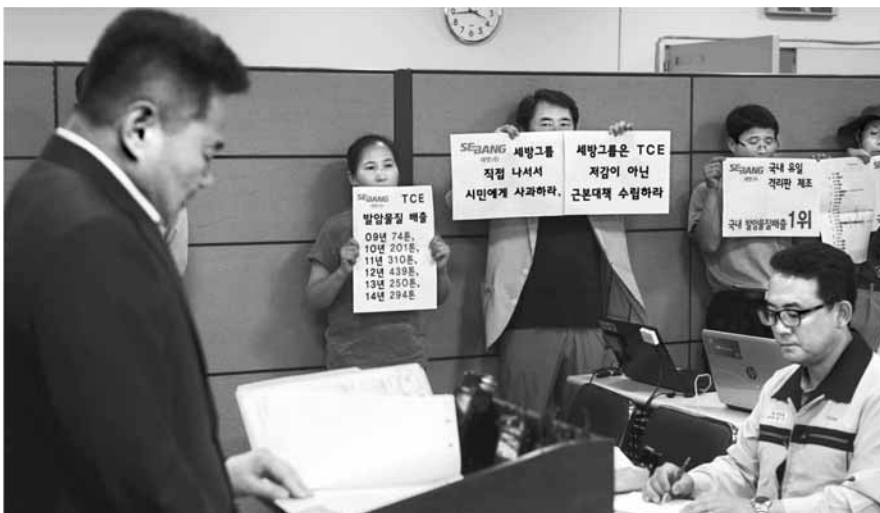 SEBANG TCE
발암물질 배출
09년 74톤,
10년 201톤,
11년 310톤,
12년 439톤,
13년 250톤,
14년 294톤
SEBANG 세방그룹
직접 나서서
시민에게 사과하라,
세방그룹은 TCE
저감이 아닌
근본대책 수립하라
SEBANG 국내 유일
격리판 제조
국내 발암물질배출 1위